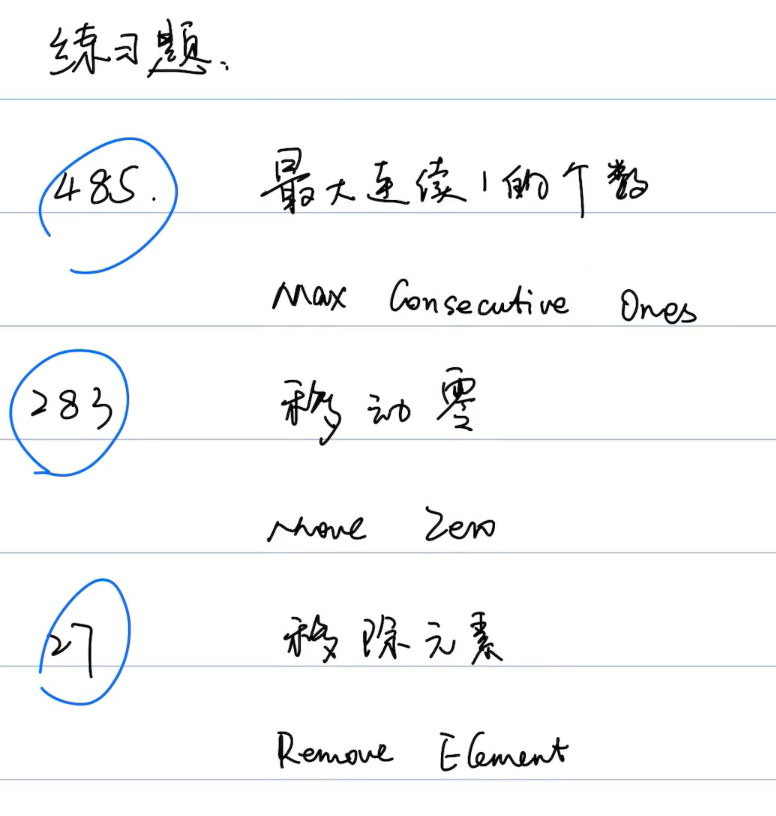 练习题:
485. 最大连续1的个数
Max Consecutive Ones
283 移动零
Move Zero
27 移除元素
Remove Element